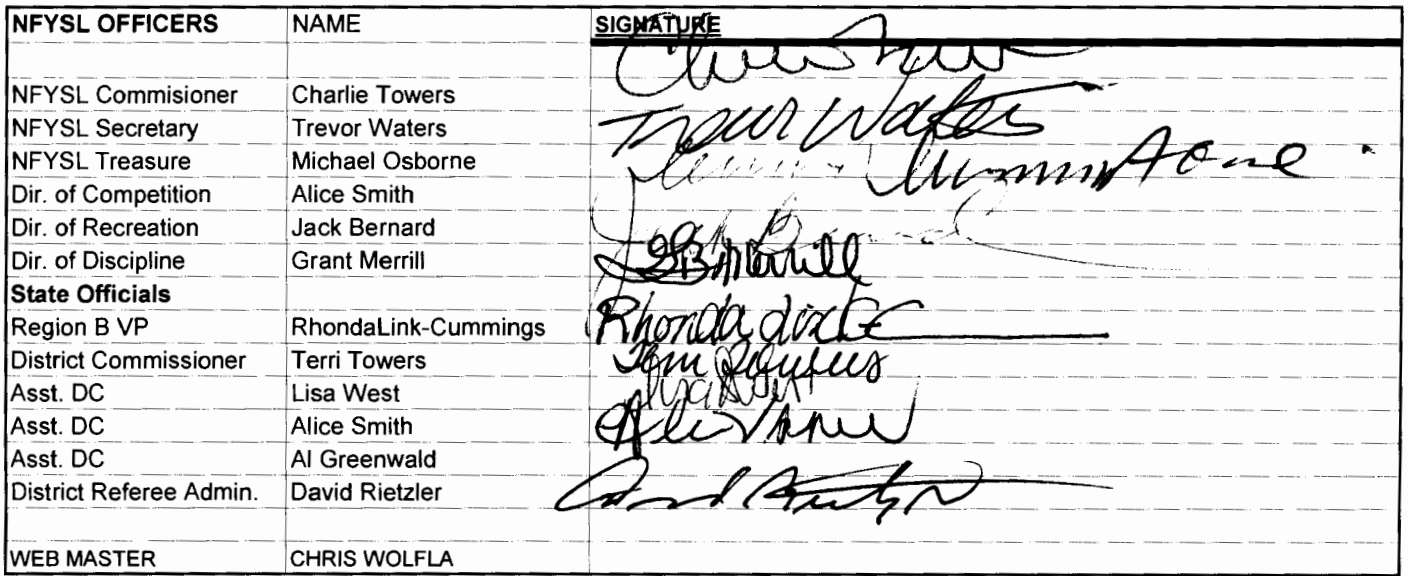 NFYSL OFFICERS NAME SIGNATURE
NFYSL Commisioner Charlie Towers
NFYSL Secretary Trevor Waters Trevor Waters
NFYSL Treasure Michael Osborne
Dir. of Competition Alice Smith
Dir. of Recreation Jack Bernard
Dir. of Discipline Grant Merrill GBMerrill
State Officials
Region B VP RhondaLink-Cummings Rhonda Link C
District Commissioner Terri Towers
Asst. DC Lisa West Lisa West
Asst. DC Alice Smith
Asst. DC Al Greenwald
District Referee Admin. David Rietzler
WEB MASTER CHRIS WOLFLA